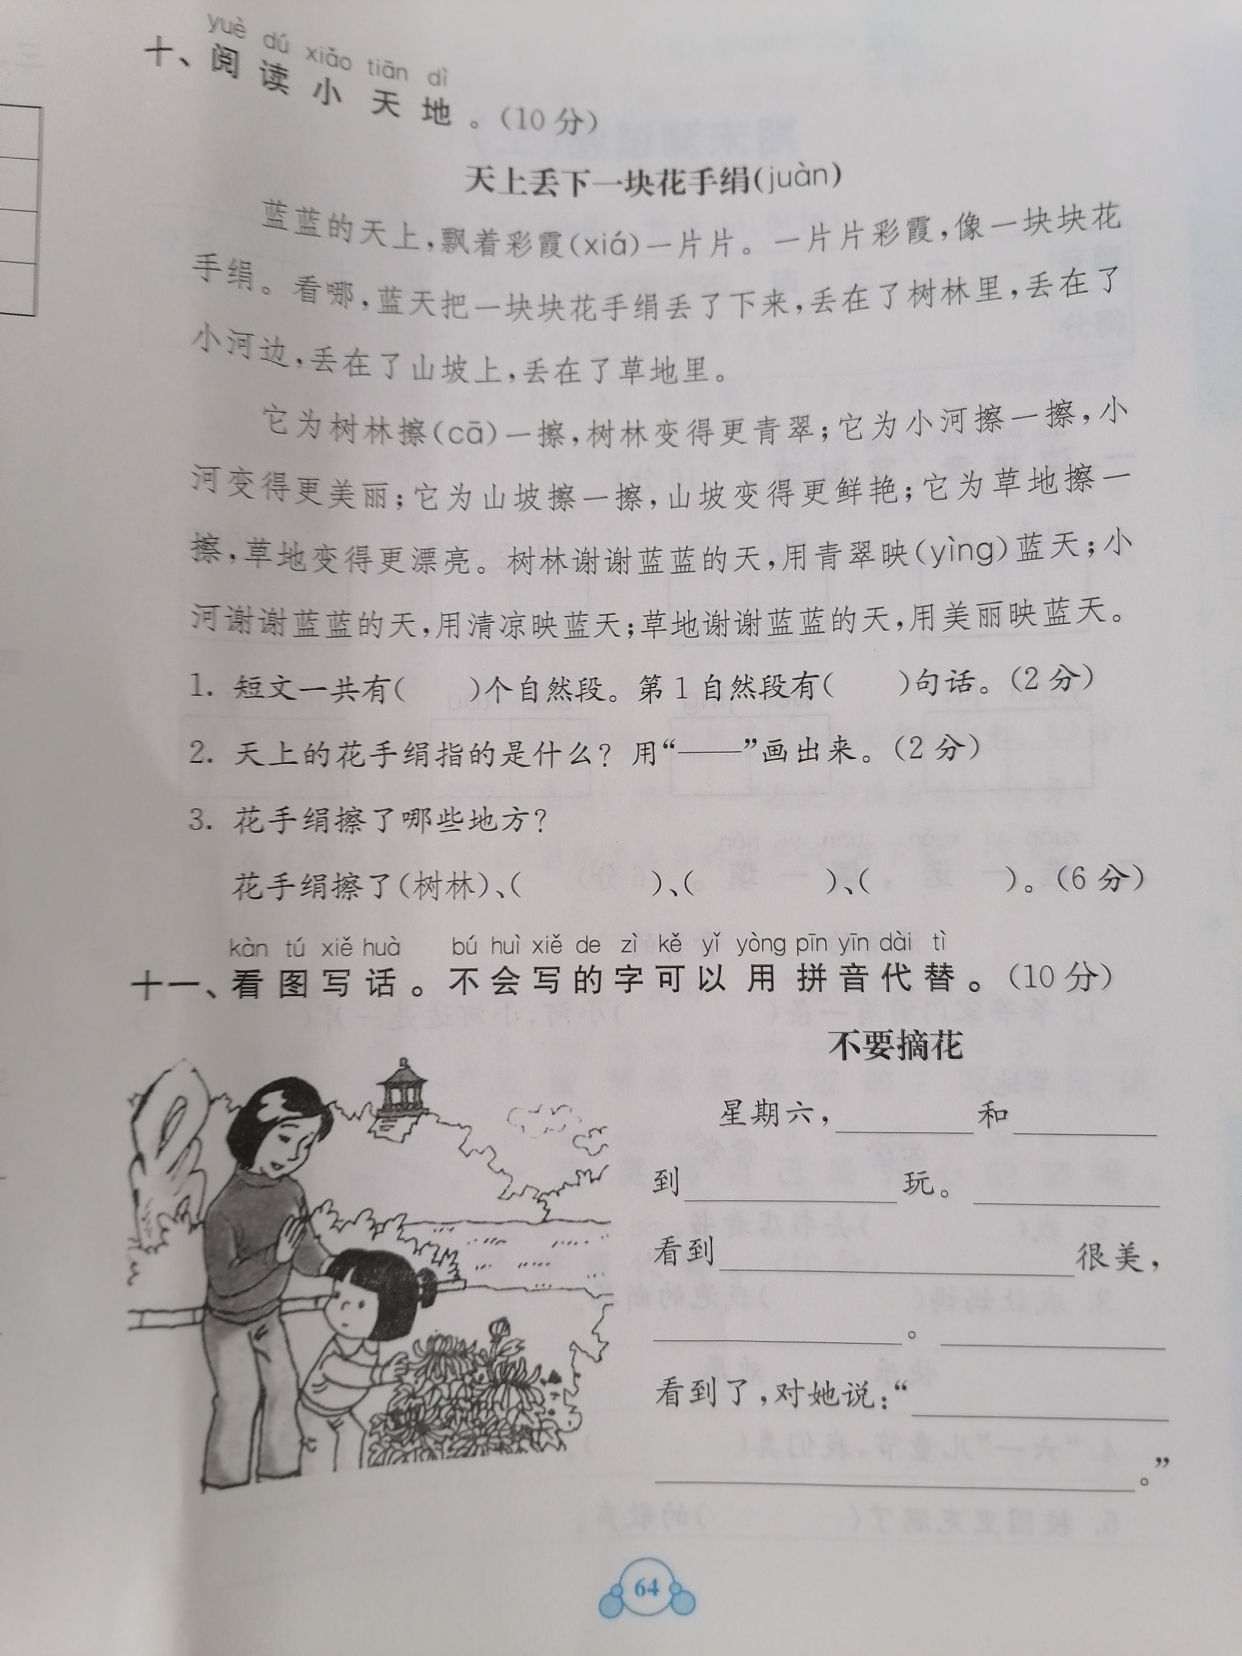 yuè dú xiǎo tiān dì
十、阅读小天地。(10分)
天上丢下一块花手绢(juàn)
蓝蓝的天上,飘着彩霞(xiá)一片片。一片片彩霞,像一块块花
手绢。看哪,蓝天把一块块花手绢丢了下来,丢在了树林里,丢在了
小河边,丢在了山坡上,丢在了草地里。
它为树林擦(cā)一擦,树林变得更青翠;它为小河擦一擦,小
河变得更美丽;它为山坡擦一擦,山坡变得更鲜艳;它为草地擦一
擦,草地变得更漂亮。树林谢谢蓝蓝的天,用青翠映(yìng)蓝天;小
河谢谢蓝蓝的天,用清凉映蓝天;草地谢谢蓝蓝的天,用美丽映蓝天。
1. 短文一共有(  )个自然段。第1自然段有(  )句话。(2分)
2. 天上的花手绢指的是什么?用“——”画出来。(2分)
3. 花手绢擦了哪些地方?
花手绢擦了(树林)、(    )、(    )、(    )。(6分)
kàn tú xiě huà bú huì xiě de zì kě yǐ yòng pīn yīn dài tì
十一、看图写话。不会写的字可以用拼音代替。(10分)
不要摘花
星期六,________和________
到____________玩。____________
看到____________________很美,
______________。____________
看到了,对她说:“______________
____________________________。”
64